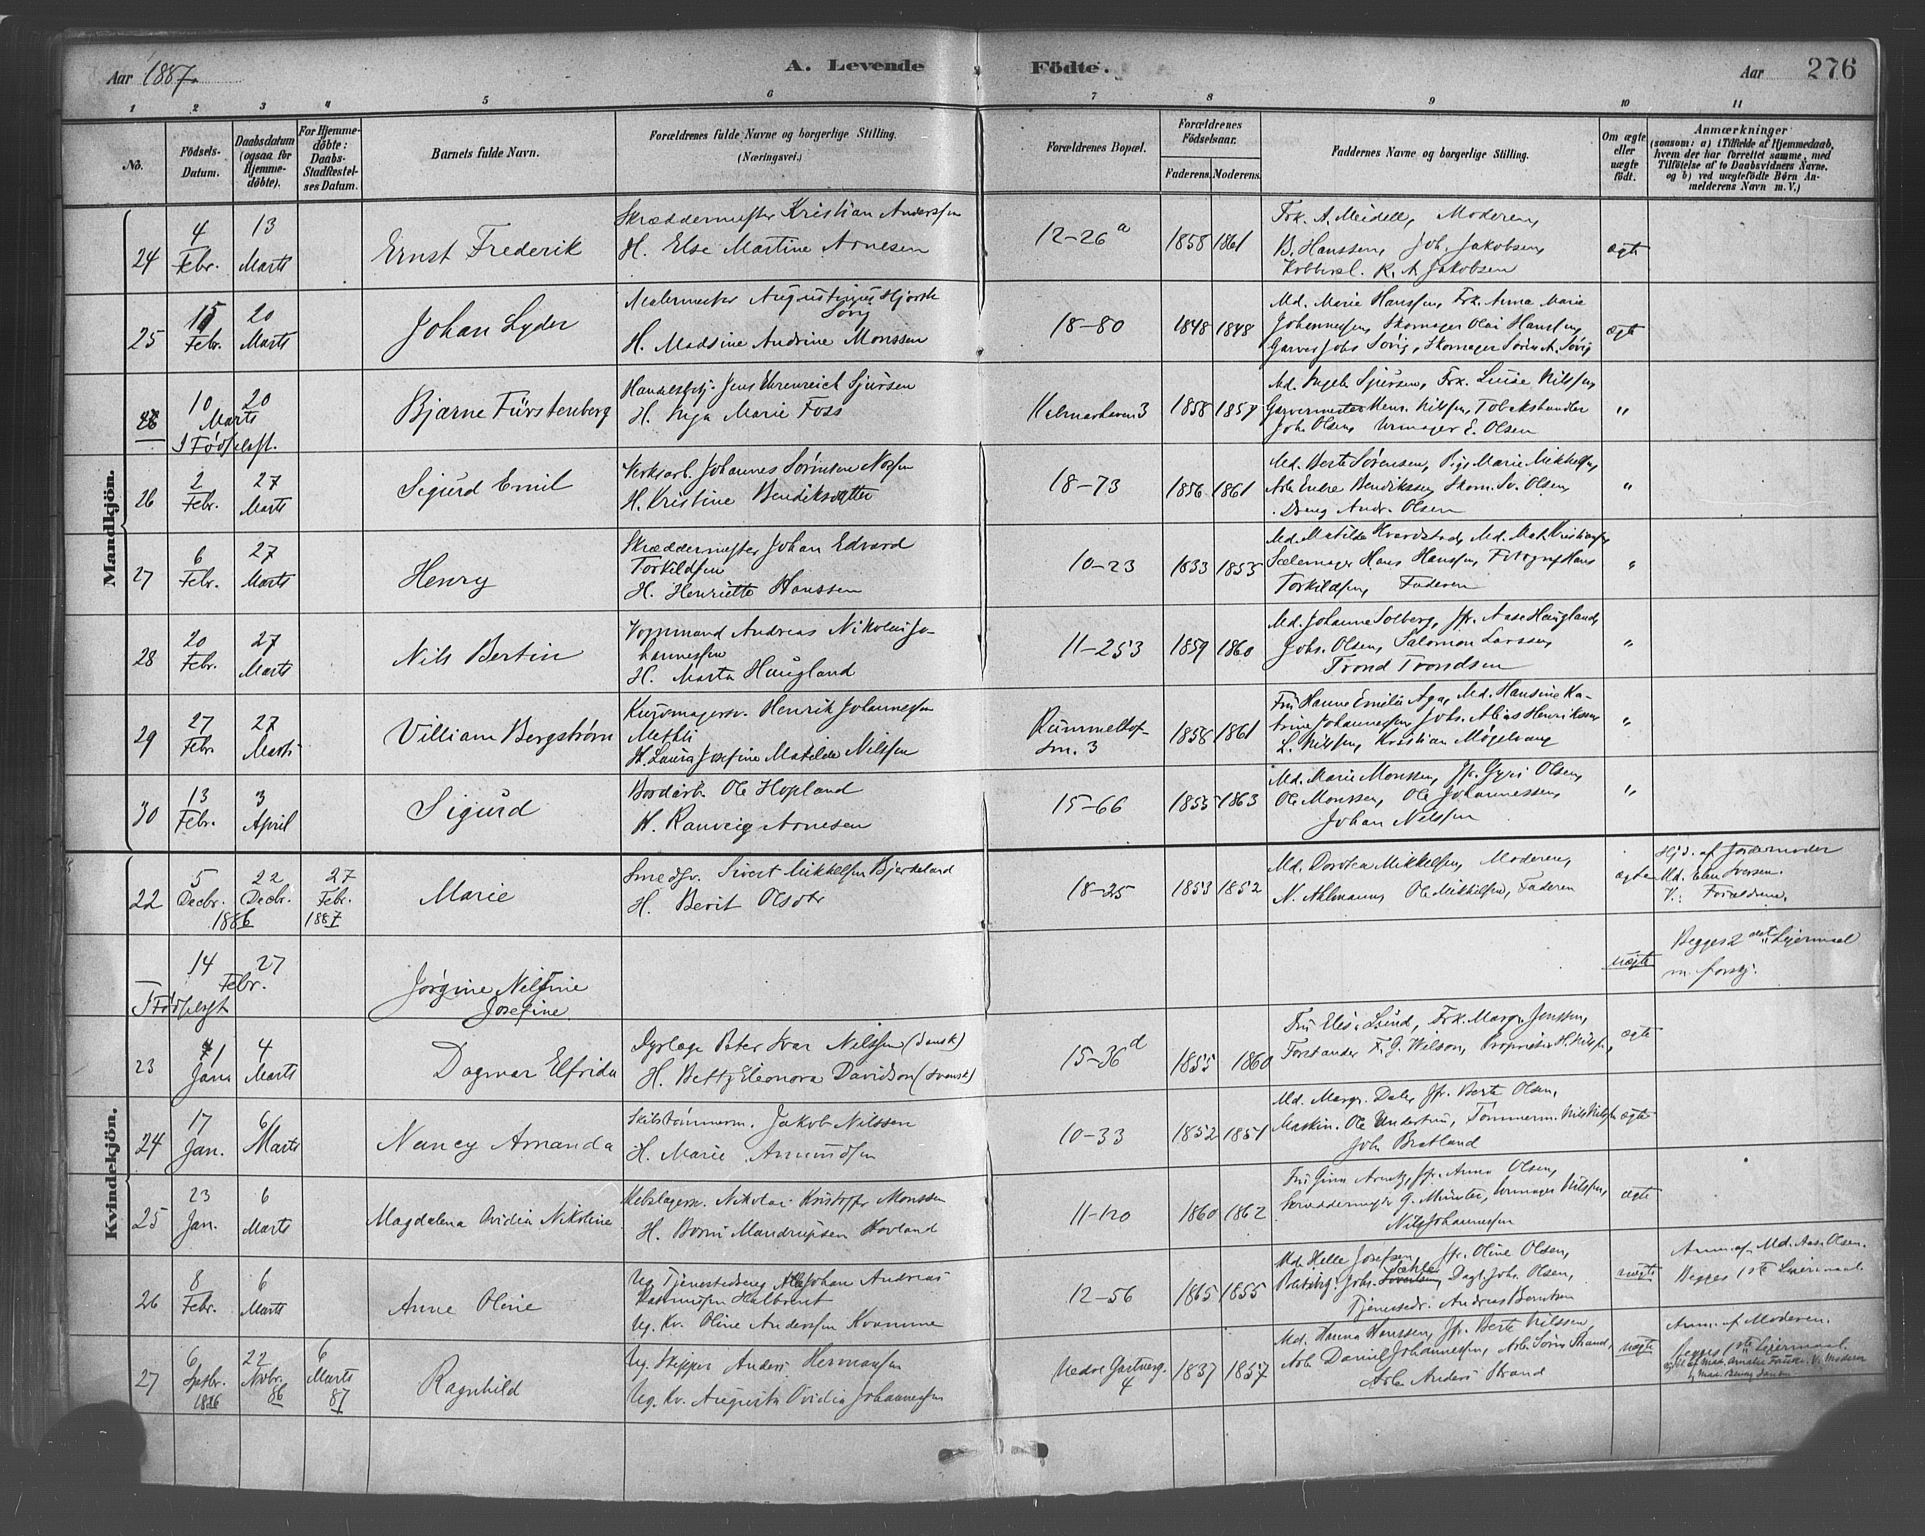 Aar 1887.
A. Levende Födte.
Aar 276
1 2 3 4 5 6 7 8 9 10 11
No.
Födsels-Datum.
Daabsdatum (ogsaa for Hjemme-döbte).
For Hjemme-döbte: Daabs-Stadfæstel-ses Datum.
Barnets fulde Navn.
Forældrenes fulde Navne og borgerlige Stilling. (Næringsvei.)
Forældrenes Bopæl.
Forældrenes Födselsaar.
Faderens. Moderens.
Faddernes Navne og borgerlige Stilling.
Om ægte eller uægte födt.
Anmærkninger
(saasom: a) i Tilfælde af Hjemmedaab, hvem der har forrettet samme, med Tilföielse af to Daabsvidners Navne, og b) ved uægtefödte Börn An-melderens Navn m. V.)
Mandkjön.
24 4 Febr. 13 Marts Ernst Frederik
Skræddermester Kristian Anderssen
H. Else Martine Arnesen
12-26a 1858 1861
Frk. A. Meidell, Moderen,
B. Hanssen, Joh. Jakobsen,
K. A. Jakobsen
ægte
25 15 Febr. 20 Marts Johan Lyder
Malermester Augustinus Hjorth
Søvig
H. Madsine Andrine Monssen
18-80 1848 1848
Md. Marie Hanssen, Frk. Anna Marie
Johannessen, Skomager Olai Hanssen,
Garver Johs Søvig, Skomager Søren A. Søvig
ægte
10 Marts 20
I Fødselsst.
Bjarne Fürstenberg
Handelsbetj. Jens Ehrenreich Sjursen
H. Inga Marie Foss
Kalmarhuun 3 1858 1859
Md. Ingeb. Sjursen, Frk. Luise Nilssen,
Garvermester Henr. Nilssen, Tobakshandler
Joh. Olsen, Urmager E. Olsen
"
26 2 Febr. 27 Marts Sigurd Emil
Verksarb. Johannes Sørensen
H. Kristine Bendiksdatter
18-73 1856 1861
Md. Berte Sørensen, Pige Marie Mikkelsen,
Arb. Endre Bendikssen, Skom. Sv. Olsen,
Dreng Andr. Olsen
"
27 6 Febr. 27 Marts Henry
Skræddermester Johan Edvard
Torkildsen
H. Henriette Hanssen
10-23 1833 1855
Md. Matilde Md. Mat. Kristiansen
Sælemager Hans Hanssen, Fotograf Hans
Torkildsen, Faderen
"
28 20 Febr. 27 Marts Nils Bertin
Vognmand Andreas Nikolai Jo-
hannessen
H. Marta Haugland
11-253 1859 1860
Md. Johanne Solberg, Jfr. Aase Haugland,
Johs. Olsen, Salomon Larssen,
Trond Trondsen
"
29 27 Febr. 27 Marts Villiam Bergstrøm
Kurvmagersv. Henrik Johannessen
Methli
H. Laura Josefine Matilde Nilssen
Rummelhof-
sm. 3 1858 1861
Fru Hanne Emilie Aga, Md. Hansine Ka-
trine Johannessen, Johs. Henrikssen,
L. Nilssen, Kristian Møgelvang
"
30 13 Febr. 3 April Sigurd
Bordarb. Ole Hopland
H. Ranveig Arnesen
15-66 1855 1863
Md. Marie Monssen, Jfr. Gyri Olsen,
Ole Monssen, Ole Johannessen,
Johan Nilssen
"
Kvindekjön.
22 5 Decbr. 22 Decbr. 1886 27 Febr. 1887 Marie
Smedsv. Sivert Mikkelsen Bjørdeland
H. Berit Olsdtr
18-25 1853 1852
Md. Dorotea Mikkelsen, Moderen,
N. Ahlmann, Ole Mikkelsen, Faderen
ægte
Hjd. af Jordemoder
Md. Elen Iversen.
V.: Forældrene.
14 27 Febr.
I Fødselsst
Jørgine Nilsine
Josefine
uægte
Begges 2det Leiermaal
m. forskj.
23 1 Janu 4 Marts Dagmar Elfrida
Dyrlæge Peter Ivar Nilssen (dansk)
H. Betty Eleonora Davidson (svensk)
15-36d 1855 1860
Fru Elis. Lund, Frk. Margr. Jenssen,
Forstander F. G. Wilson, Proprietær H. Nilssen,
ægte
24 17 Jan. 6 Marts Nancy Amanda
Skibstømmerm. Jakob Nilssen
H. Marie Amundsen
10-33 1852 1851
Md. Margr. Dale, Jfr. Berte Olsen,
Maskin. Ole Tømmerm. Nils Nilssen
Joh. Bratland
ægte
25 23 Jan. 6 Marts Magdalena Ovidia Nikoline
Nikolai Kristoffer Monssen
H. Mandrupsen Hovland
11-120 1860 1862
Fru Gina Arentz, Jfr. Anna Olsen,
Skræddermester G. Münter, Urmager Nilssen,
Nils Johannessen
ægte
26 8 Febr. 6 Marts Anne Oline
Ug. Tjenestedreng Johan Andreas
Rasmussen Halbrent
Ug. Kv. Oline Anderssen Kvamme
12-56 1865 1855
Md. Helle Josefsen, Jfr. Oline Olsen,
Politibtj. Johs. Dagl. Johs. Olsen,
Tjenestedr. Andreas Berntsen
uægte
Anm. af Md. Aase Olsen.
Begges 1ste Leiermaal.
27 6 Septbr. 1886 22 Novbr. 86 6 Marts 87 Ragnhild
Ug. Skipper Anders Hermansen
Ug. Kv. Augusta Ovidia Johannessen
Nedre Hartverg.
4 1837 1857
Md. Hanna Hanssen, Jfr. Berte Nilssen,
Arb. Daniel Johannessen, Arb. Søren Strand,
Arb. Anders Strand
uægte
Anm. af Moderen.
Begges 1ste Leiermaal.